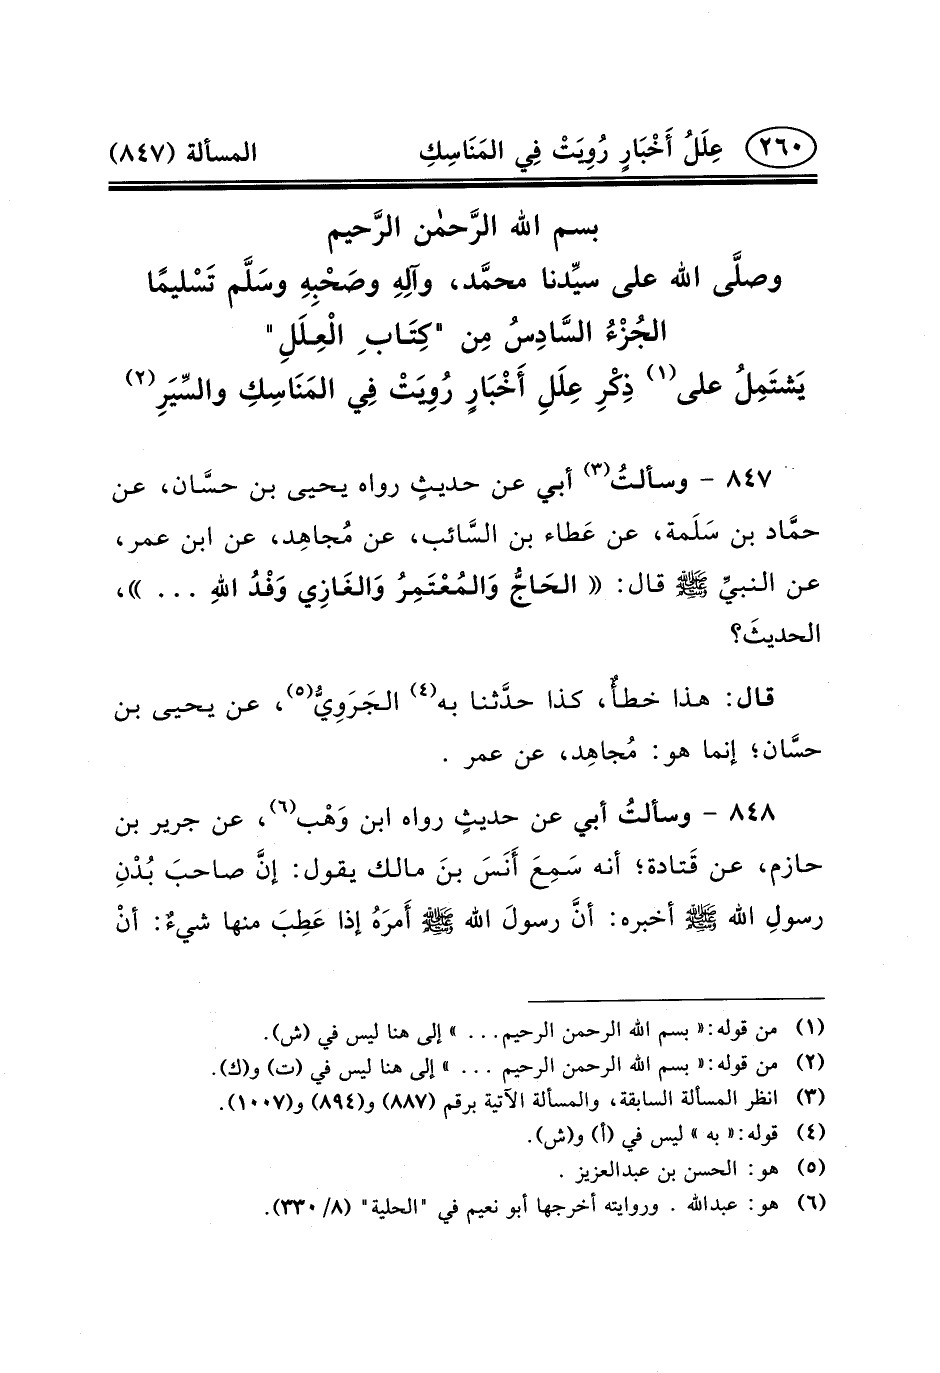 ٢٦٠ عِلَلُ أَخْبَارٍ رُوِيَتْ فِي المَنَاسِكِ المسألة (٨٤٧)
بسم الله الرَّحمٰن الرَّحيم
وصلَّى الله على سيِّدنا محمَّد، وآلِهِ وصَحْبِهِ وسَلَّم تَسْليمًا
الجُزْءُ السَّادِسُ مِن "كِتَابِ الْعِلَلِ"
يَشتَمِلُ على(١) ذِكْرِ عِلَلِ أَخْبَارٍ رُوِيَتْ فِي المَنَاسِكِ والسِّيَرِ(٢)
٨٤٧ - وسألتُ(٣) أبي عن حديثٍ رواه يحيى بن حسَّان، عن
حمَّاد بن سَلَمة، عن عَطاء بن السَّائب، عن مُجاهِد، عن ابن عمر،
عن النبيِّ ﷺ قال: « الحَاجُّ وَالمُعْتَمِرُ وَالغَازِي وَفْدُ اللهِ ... »،
الحديثَ؟
قال: هذا خطأٌ، كذا حدَّثنا به(٤) الجَرَوِيُّ(٥)، عن يحيى بن
حسَّان؛ إنما هو: مُجاهِد، عن عمر .
٨٤٨ - وسألتُ أبي عن حديثٍ رواه ابن وَهْب(٦)، عن جرير بن
حازم، عن قَتادة؛ أنه سَمِعَ أَنَسَ بنَ مالك يقول: إنَّ صاحبَ بُدْنِ
رسولِ الله ﷺ أخبره: أنَّ رسولَ الله ﷺ أَمَرَهُ إذا عَطِبَ منها شيءٌ: أنْ
(١) من قوله:« بسم الله الرحمن الرحيم... » إلى هنا ليس في (ش).
(٢) من قوله:« بسم الله الرحمن الرحيم ... » إلى هنا ليس في (ت) و(ك).
(٣) انظر المسألة السابقة، والمسألة الآتية برقم (٨٨٧) و(٨٩٤) و(١٠٠٧).
(٤) قوله:« به » ليس في (أ) و(ش).
(٥) هو: الحسن بن عبدالعزيز .
(٦) هو: عبدالله . وروايته أخرجها أبو نعيم في "الحلية" (٨/ ٣٣٠).